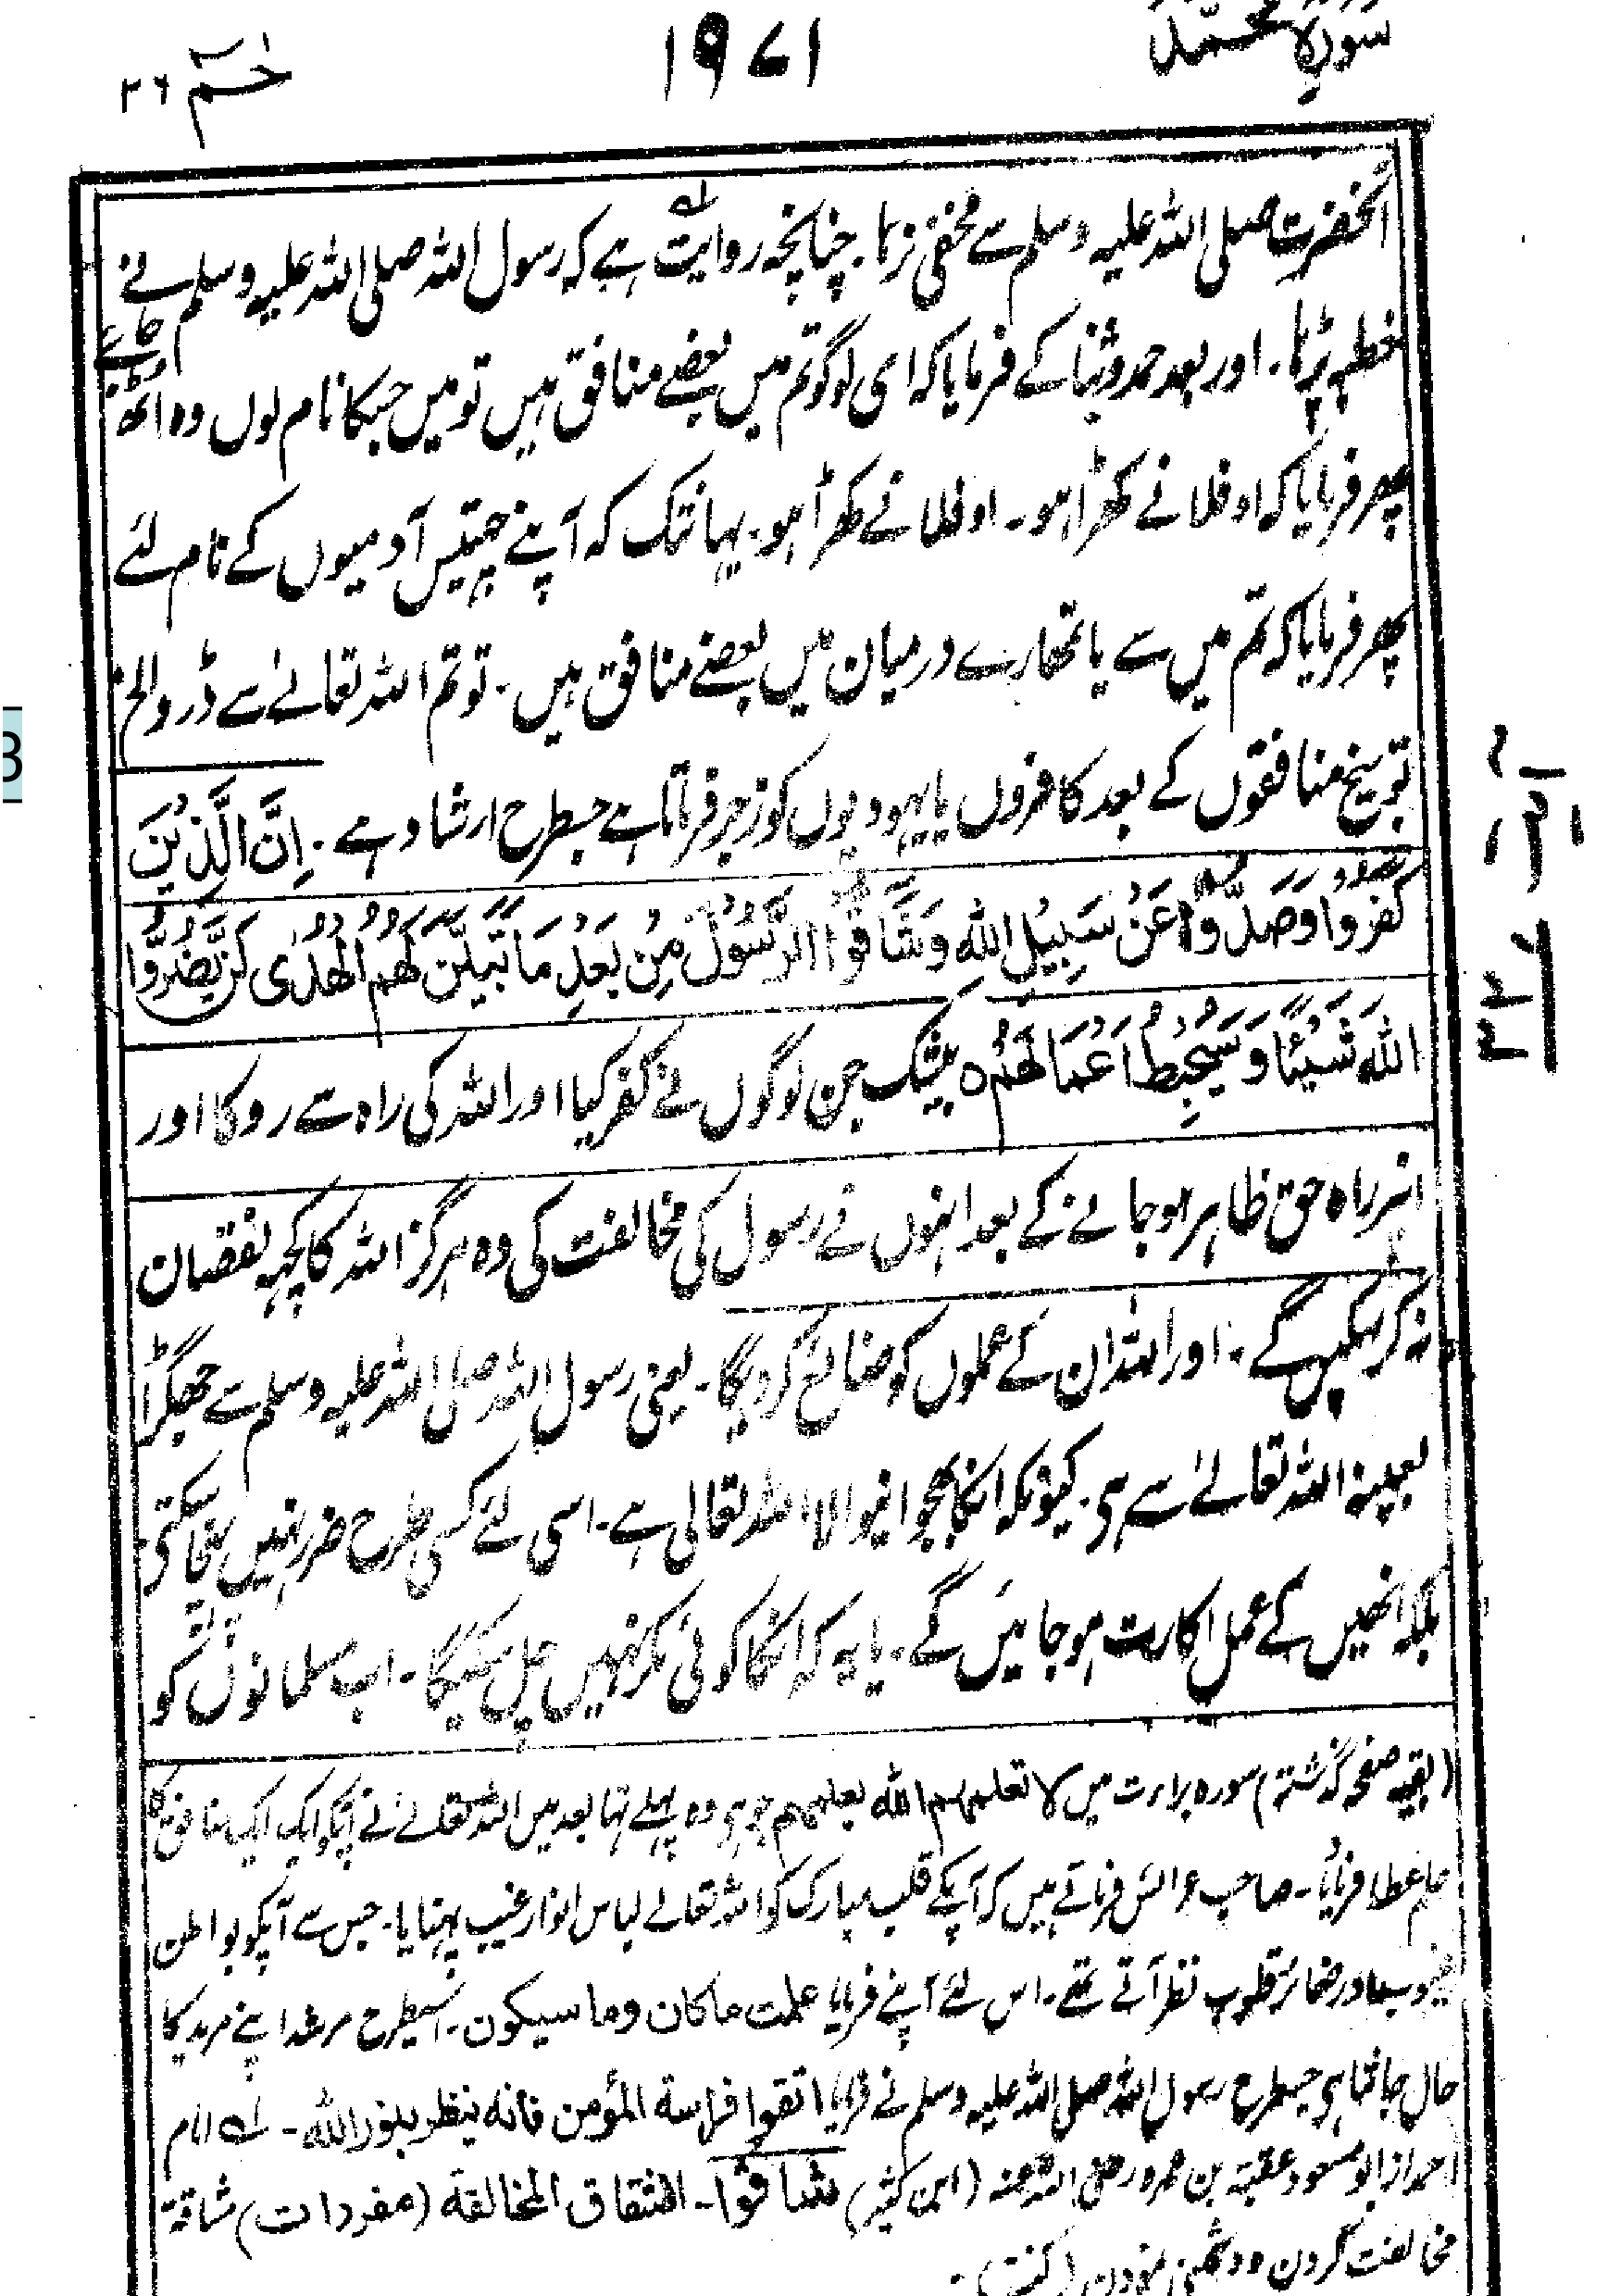 سورۃ محمد ۱۹۷۱ حٰمٓ ۲۶
آنحضرت صلی اللہ علیہ وسلم سے مخفی نرہا۔ چنانچہ روایت لہ ہے کہ رسول اللہ صلی اللہ علیہ وسلم نے
خطبہ پڑہا۔ اور بعد حمد وثنا کے فرمایا کہ ای لوگو تم میں بعضے منافق ہیں تو میں جسکا نام لوں وہ اٹھ جائے
پھر فرمایا کہ او فلانے کھڑا ہو۔ او فلانے کھڑا ہو۔ یہانتک کہ آپنے چھتیس آدمیوں کے نام لئے
پھر فرمایا کہ تم میں سے یا تمھارے درمیان میں بعضے منافق ہیں۔ تو تم اللہ تعالےٰ سے ڈرو الخ۔
توبیخ منافقوں کے بعد کافروں یا یہودیوں کو زجر فرماتا ہے جسطرح ارشاد ہے۔ اِنَّ الَّذِیْنَ
کَفَرُوْا وَصَدُّوْا عَنْ سَبِیْلِ اللّٰهِ وَشَآقُّوا الرَّسُوْلَ مِنْ بَعْدِ مَا تَبَیَّنَ لَهُمُ الْهُدٰی لَنْ یَّضُرُّوا
اللّٰهَ شَیْئًا وَسَیُحْبِطُ اَعْمَالَهُمْ ه بیشک جن لوگوں نے کفر کیا اور اللہ کی راہ سے روکا اور
انپر راہ حق ظاہر ہوجانے کے بعد انہوں نے رسول کی مخالفت کی وہ ہرگز اللہ کا کچہہ نقصان
نہ کرسکیں گے۔ اور اللہ ان کے عملوں کو ضائع کردیگا۔ یعنی رسول اللہ صلی اللہ علیہ وسلم سے جھگڑا
بعینہ اللہ تعالےٰ سے ہی۔ کیونکہ انکا بھجوانیوالا اللہ تعالی ہے۔ اسی لئے کسی طرح ضرر نہیں پہنچاسکتی
بلکہ انھیں کے عمل اکارت ہوجائیں گے۔ یا یہ کہ انکا کوئی مکر نہیں چل سکیگا۔ اب مسلمانوں کو
(بقیہ صفحہ گذشتہ) سورہ براءت میں لا تعلمہم اللہ یعلمہم جو ہی وہ پہلے تہا بعد میں اللہ تعالےٰ نے آپکو ایک ایک منافق کا
علم عطا فرمایا۔ صاحب عرائس فرماتے ہیں کہ آپکے قلب مبارک کو اللہ تعالے لباس انوار غیب پہنایا۔ جس سے آپکو بواطن
غیوب اور ضمائر قلوب نظر آتے تھے۔ اس لئے آپنے فرمایا علمت ماکان وما سیکون۔ اسیطرح مرشد اپنے مرید کا
حال جانتا ہی جسطرح رسول اللہ صلی اللہ علیہ وسلم نے فرمایا اتقوا فراسة المؤمن فانه ینظر بنور اللہ۔ لہ امام
احمد از ابو مسعود عقبۃ بن عمرو رضی اللہ عنہ (ابن کثیر) شاقوا۔ الشقاق المخالفة (مفردات) شاقۃ
مخالفت کردن و دشمنی نمودن